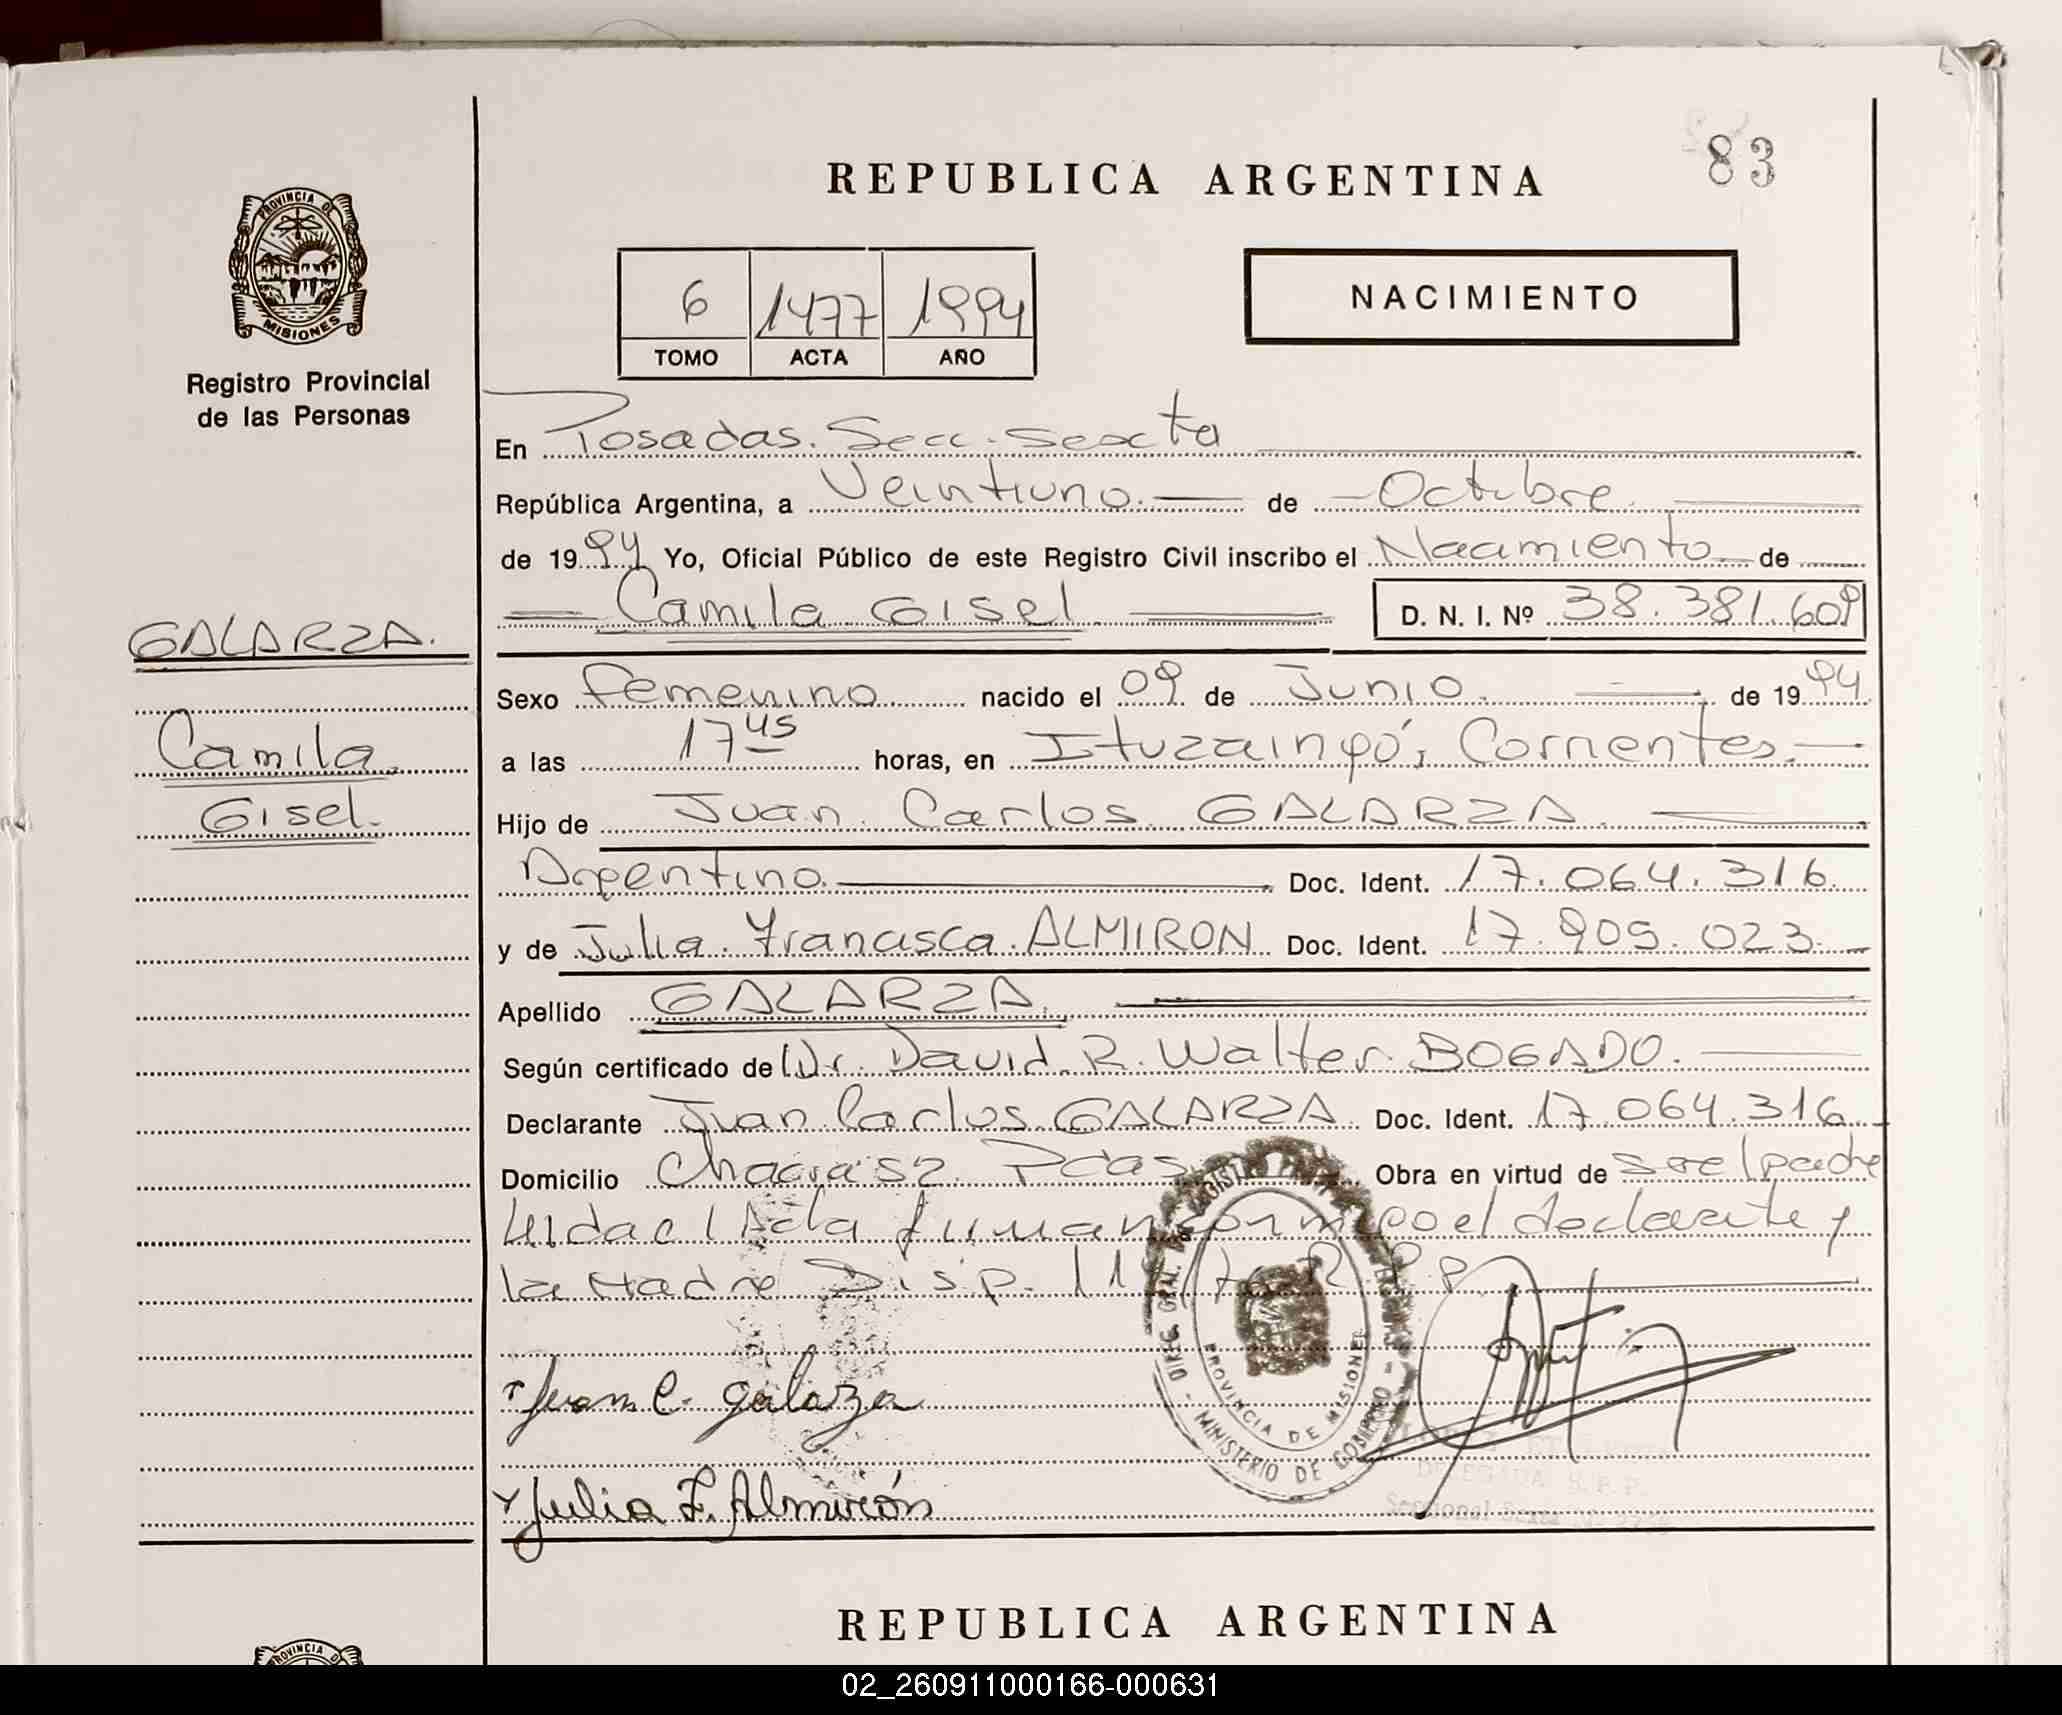 83
REPUBLICA ARGENTINA
PROVINCIA DE
MISIONES
Registro Provincial
de las Personas
6 1477 1994
TOMO ACTA AÑO
NACIMIENTO
En Posadas. Secc. Sexta
República Argentina, a Veintiuno. de Octubre.
de 1994 Yo, Oficial Público de este Registro Civil inscribo el Nacimiento de
Camila Gisel D. N. I. Nº 38.381.609
GALARZA.
Camila
Gisel.
Sexo Femenino nacido el 09 de Junio. de 1994
a las 17 45 horas, en Ituzaingó, Corrientes.
Hijo de Juan Carlos GALARZA.
Argentino. Doc. Ident. 17.064.316.
y de Julia Francisca ALMIRON Doc. Ident. 17.905.023.
Apellido GALARZA.
Según certificado de Dr. David R. Walter BOGADO.
Declarante Juan Carlos GALARZA Doc. Ident. 17.064.316
Domicilio Chacra 52 Pdas Obra en virtud de ser el padre
Leida el Acta firman conmigo el declarante y
la Madre Disp. R. P. P.
Juan C. Galarza
DIREC. GRAL. DE REGISTRO
PROVINCIA DE MISIONES
- MINISTERIO DE GOBIERNO -
DELEGADA R.P.P.
Seccional Sexta
Julia F. Almirón
REPUBLICA ARGENTINA
PROVINCIA D
02_260911000166-000631